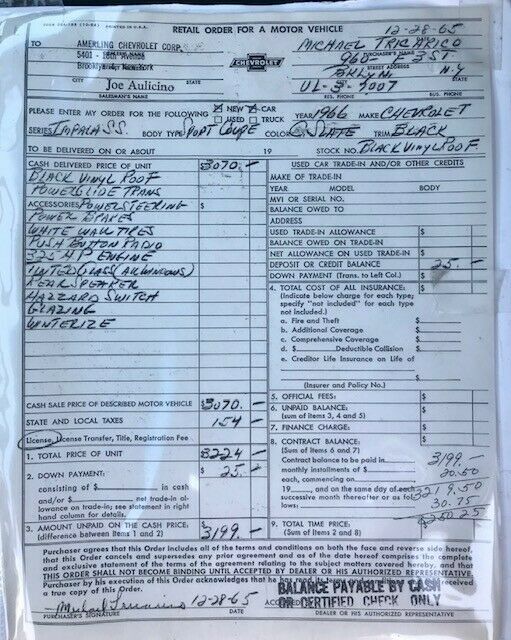 PRINTED IN U.S.A.
RETAIL ORDER FOR A MOTOR VEHICLE 12-28-65
TO AMERLING CHEVROLET CORP. MICHAEL TRICARICO
DEALER'S NAME PURCHASER'S NAME
5401 - 16th Avenue 960 - 3 ST
STREET ADDRESS
Brooklyn 4, New York BKLYN N.Y.
CITY STATE CITY STATE
Joe Aulicino CHEVROLET UL-8-5007
SALESMAN'S NAME RES. PHONE BUS. PHONE
PLEASE ENTER MY ORDER FOR THE FOLLOWING NEW CAR YEAR 1966 MAKE CHEVROLET
USED TRUCK
SERIES IMPALA SS. BODY TYPE SPORT COUPE COLOR SLATE TRIM BLACK
TO BE DELIVERED ON OR ABOUT 19 STOCK NO. BLACK VINYL ROOF
CASH DELIVERED PRICE OF UNIT $3070.-
BLACK VINYL ROOF
POWERGLIDE TRANS
ACCESSORIES POWER STEERING $
POWER BRAKES
WHITE WALL TIRES
PUSH BUTTON RADIO
325 HP ENGINE
TINTED GLASS (ALL WINDOWS)
REAR SPEAKER
HAZZARD SWITCH
GLAZING
WINTERIZE
CASH SALE PRICE OF DESCRIBED MOTOR VEHICLE $3070.-
STATE AND LOCAL TAXES 154-
License, License Transfer, Title, Registration Fee
1. TOTAL PRICE OF UNIT $3224-
2. DOWN PAYMENT: $25.-
consisting of $ in cash
and/or $ net trade-in al-
lowance on trade-in; see statement in right
hand column for details.
3. AMOUNT UNPAID ON THE CASH PRICE: $3199.-
(difference between Items 1 and 2)
USED CAR TRADE-IN AND/OR OTHER CREDITS
MAKE OF TRADE-IN
YEAR MODEL BODY
MVI OR SERIAL NO.
BALANCE OWED TO
ADDRESS
USED TRADE-IN ALLOWANCE $
BALANCE OWED ON TRADE-IN
NET ALLOWANCE ON USED TRADE-IN $
DEPOSIT OR CREDIT BALANCE 25.-
DOWN PAYMENT (Trans. to Left Col.) $
4. TOTAL COST OF ALL INSURANCE: $
(Indicate below charge for each type;
specify "not included" for each type
not included.)
a. Fire and Theft $
b. Additional Coverage $
c. Comprehensive Coverage $
d. $ Deductible Collision $
e. Creditor Life Insurance on Life of
$
(Insurer and Policy No.)
5. OFFICIAL FEES: $
6. UNPAID BALANCE: $
(sum of items 3, 4 and 5)
7. FINANCE CHARGE: $
8. CONTRACT BALANCE: $
(Sum of items 6 and 7)
Contract balance to be paid in 3199.-
monthly installments of $ 20.50
each, commencing on
19 , and on the same day of each 3219.50
successive month thereafter or as fol-
lows: 30.75
$3250.25
9. TOTAL TIME PRICE: $
(Sum of Items 2 and 8)
Purchaser agrees that this Order includes all of the terms and conditions on both the face and reverse side hereof,
that this Order cancels and supersedes any prior agreement and as of the date hereof comprises the complete
and exclusive statement of the terms of the agreement relating to the subject matters covered hereby, and that
THIS ORDER SHALL NOT BECOME BINDING UNTIL ACCEPTED BY DEALER OR HIS AUTHORIZED REPRESENTATIVE.
Purchaser by his execution of this Order acknowledges that he has read its terms and
a true copy of this Order.
BALANCE PAYABLE BY CASH
OR CERTIFIED CHECK ONLY
12-28-65
PURCHASER'S SIGNATURE DATE DEALER OR HIS AUTHORIZED REPRESENTATIVE